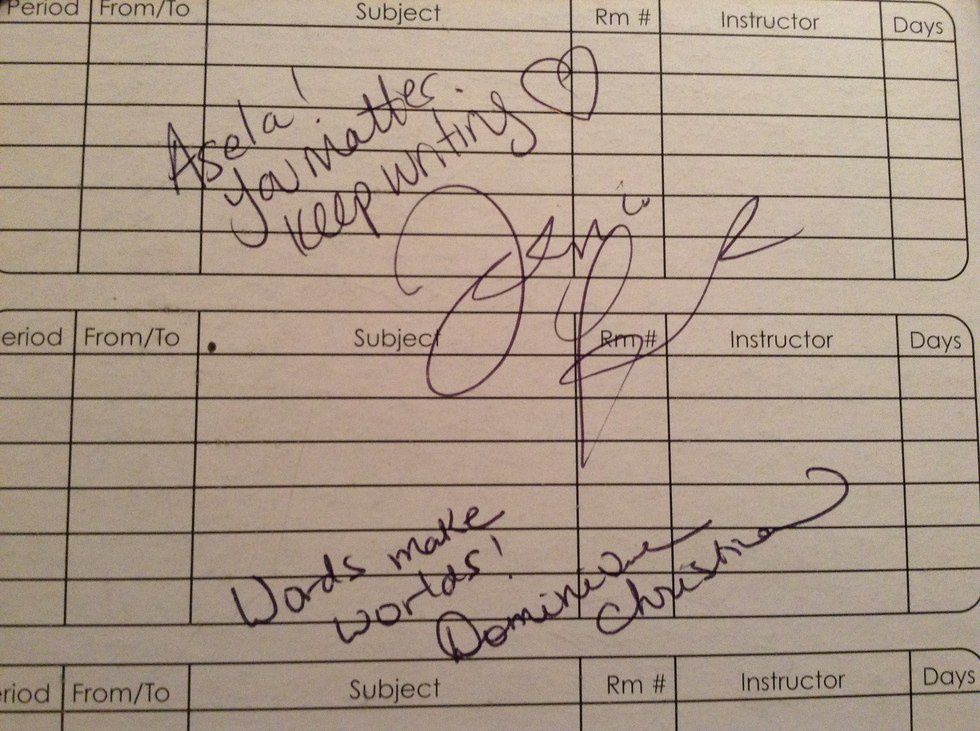 Period From/To Subject Rm # Instructor Days
Asela!
You Matter.
Keep writing
eriod From/To Subject Rm # Instructor Days
Words make
worlds!
Dominique
Christina
riod From/To Subject Rm # Instructor Days